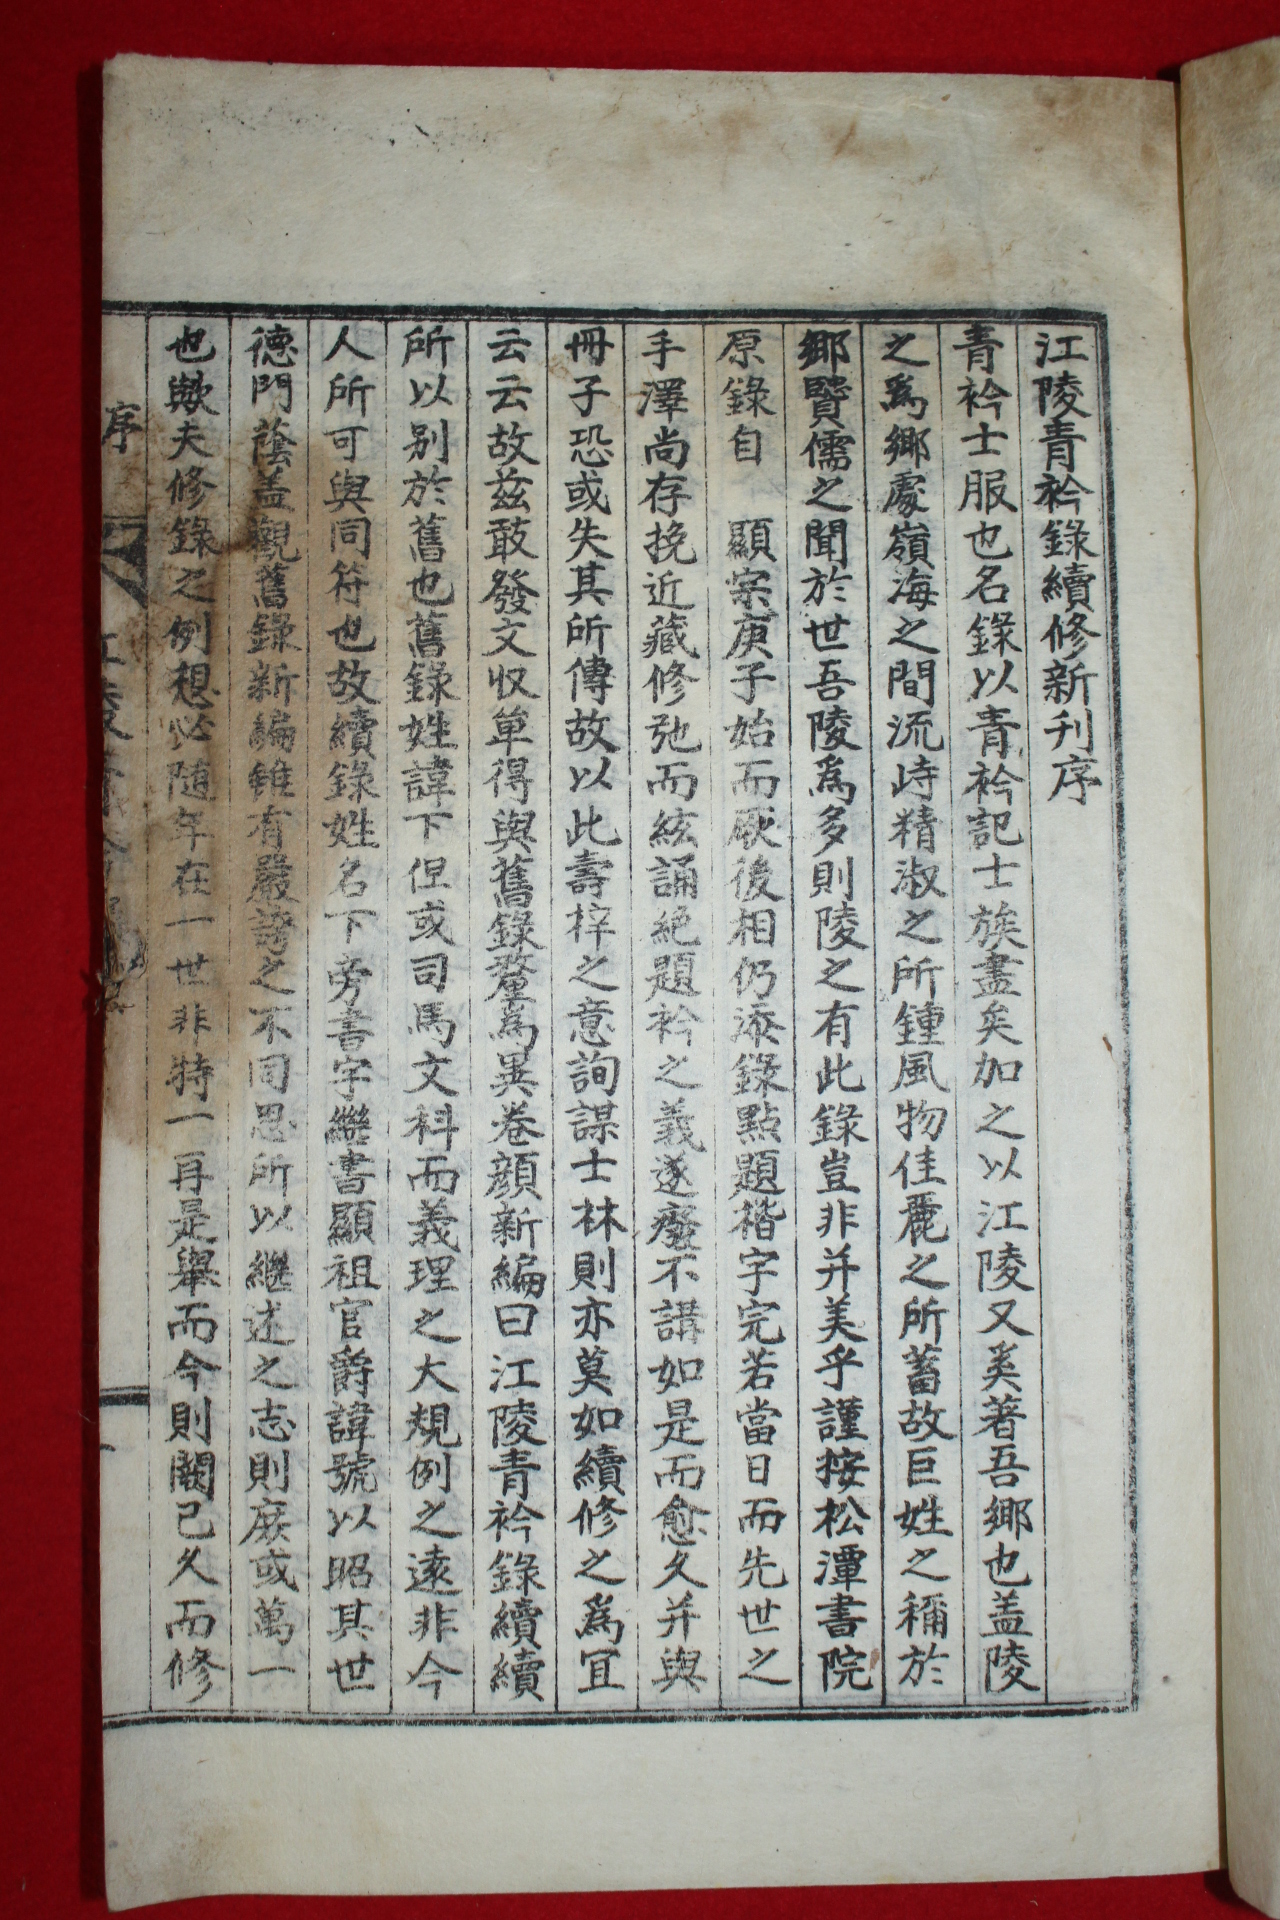 江陵青衿錄續修新刊序
青衿士服也名錄以青衿記士族盡矣加之以江陵又奚著吾鄉也盖陵
之爲鄉處嶺海之間流峙精淑之所鍾風物佳麗之所蓄故巨姓之稱於
鄉賢儒之聞於世吾陵爲多則陵之有此錄豈非并美乎謹按松潭書院
原錄自 顯宗庚子始而厥後相仍添錄點題楷字完若當日而先世之
手澤尚存挽近藏修弛而絃誦絶題衿之義遂癈不講如是而愈久并與
冊子恐或失其所傳故以此壽梓之意詢謀士林則亦莫如續修之爲宜
云云故茲敢發文収单得與舊錄釐爲異卷顔新編曰江陵青衿錄續續
所以別於舊也舊錄姓諱下但或司馬文科而義理之大規例之遠非今
人所可與同符也故續錄姓名下旁書字繼書顯祖官爵諱號以昭其世
德門蔭盖觀舊錄新編雖有嚴謗之不同思所以繼述之志則庶或萬一
也歟夫修錄之例想必随年在一世非特一再是舉而今則闕已久而修
序